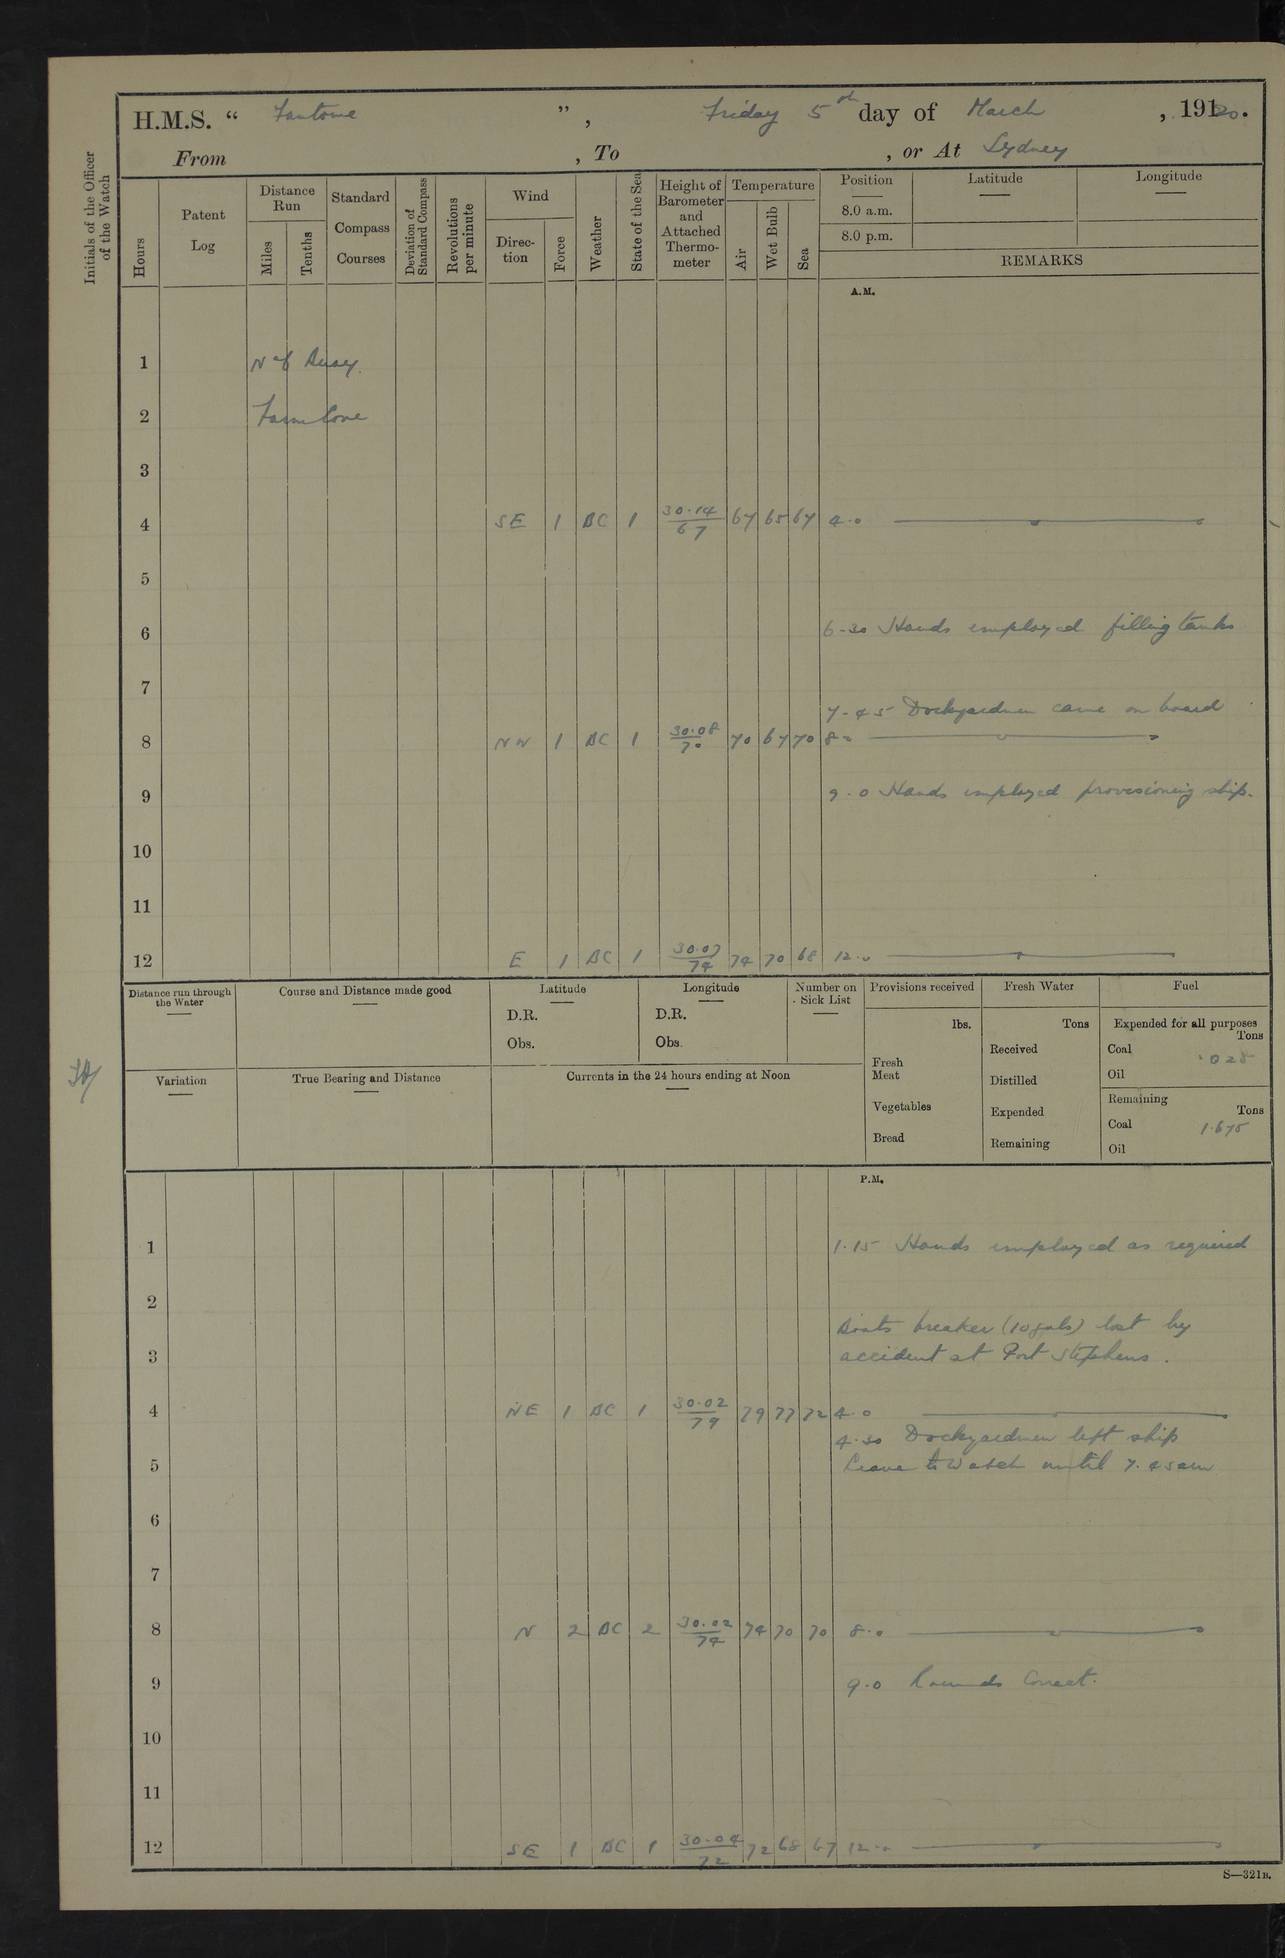 H.M.S. “ Fantome ”, Friday 5th day of March, 1920.
From , To , or At Sydney
Initials of the Officer of the Watch
Hours
Patent Log
Distance Run
Miles
Tenths
Standard Compass Courses
Deviation of Standard Compass
Revolutions per minute
Wind
Direc-tion
Force
Weather
State of the Sea
Height of Barometer and Attached Thermo-meter
Temperature
Air
Wet Bulb
Sea
Position
Latitude
Longitude
8.0 a.m.
8.0 p.m.
REMARKS
A.M.
1 No 6 Buoy.
2 Farm Cove
3
4 SE 1 BC 1 30.14/67 67 65 67 4.0
5
6 6-30 Hands employed filling tanks
7
7-45 Dockyardmen came on board
8 NW 1 BC 1 30.08/70 70 67 70 8.0
9 9.0 Hands employed provisioning ship.
10
11
12 E 1 BC 1 30.07/74 74 70 68 12.0
Distance run through the Water
Course and Distance made good
Latitude
D.R.
Obs.
Longitude
D.R.
Obs.
Number on Sick List
Provisions received
lbs.
Fresh Meat
Vegetables
Bread
Fresh Water
Tons
Received
Distilled
Expended
Remaining
Fuel
Expended for all purposes
Tons
Coal .028
Oil
Remaining
Tons
Coal 1.675
Oil
Variation
True Bearing and Distance
Currents in the 24 hours ending at Noon
P.M.
1 1.15 Hands employed as required
2
Boats breaker (10 gals) lost by
3 accident at Port Stephens.
4 NE 1 BC 1 30.02/79 79 77 72 4.0
4.30 Dockyardmen left ship
5 Leave to Watch until 7.45am
6
7
8 N 2 BC 2 30.02/74 74 70 70 8.0
9 9.0 Rounds Correct.
10
11
12 SE 1 BC 1 30.04/72 72 68 67 12.0
S—321B.